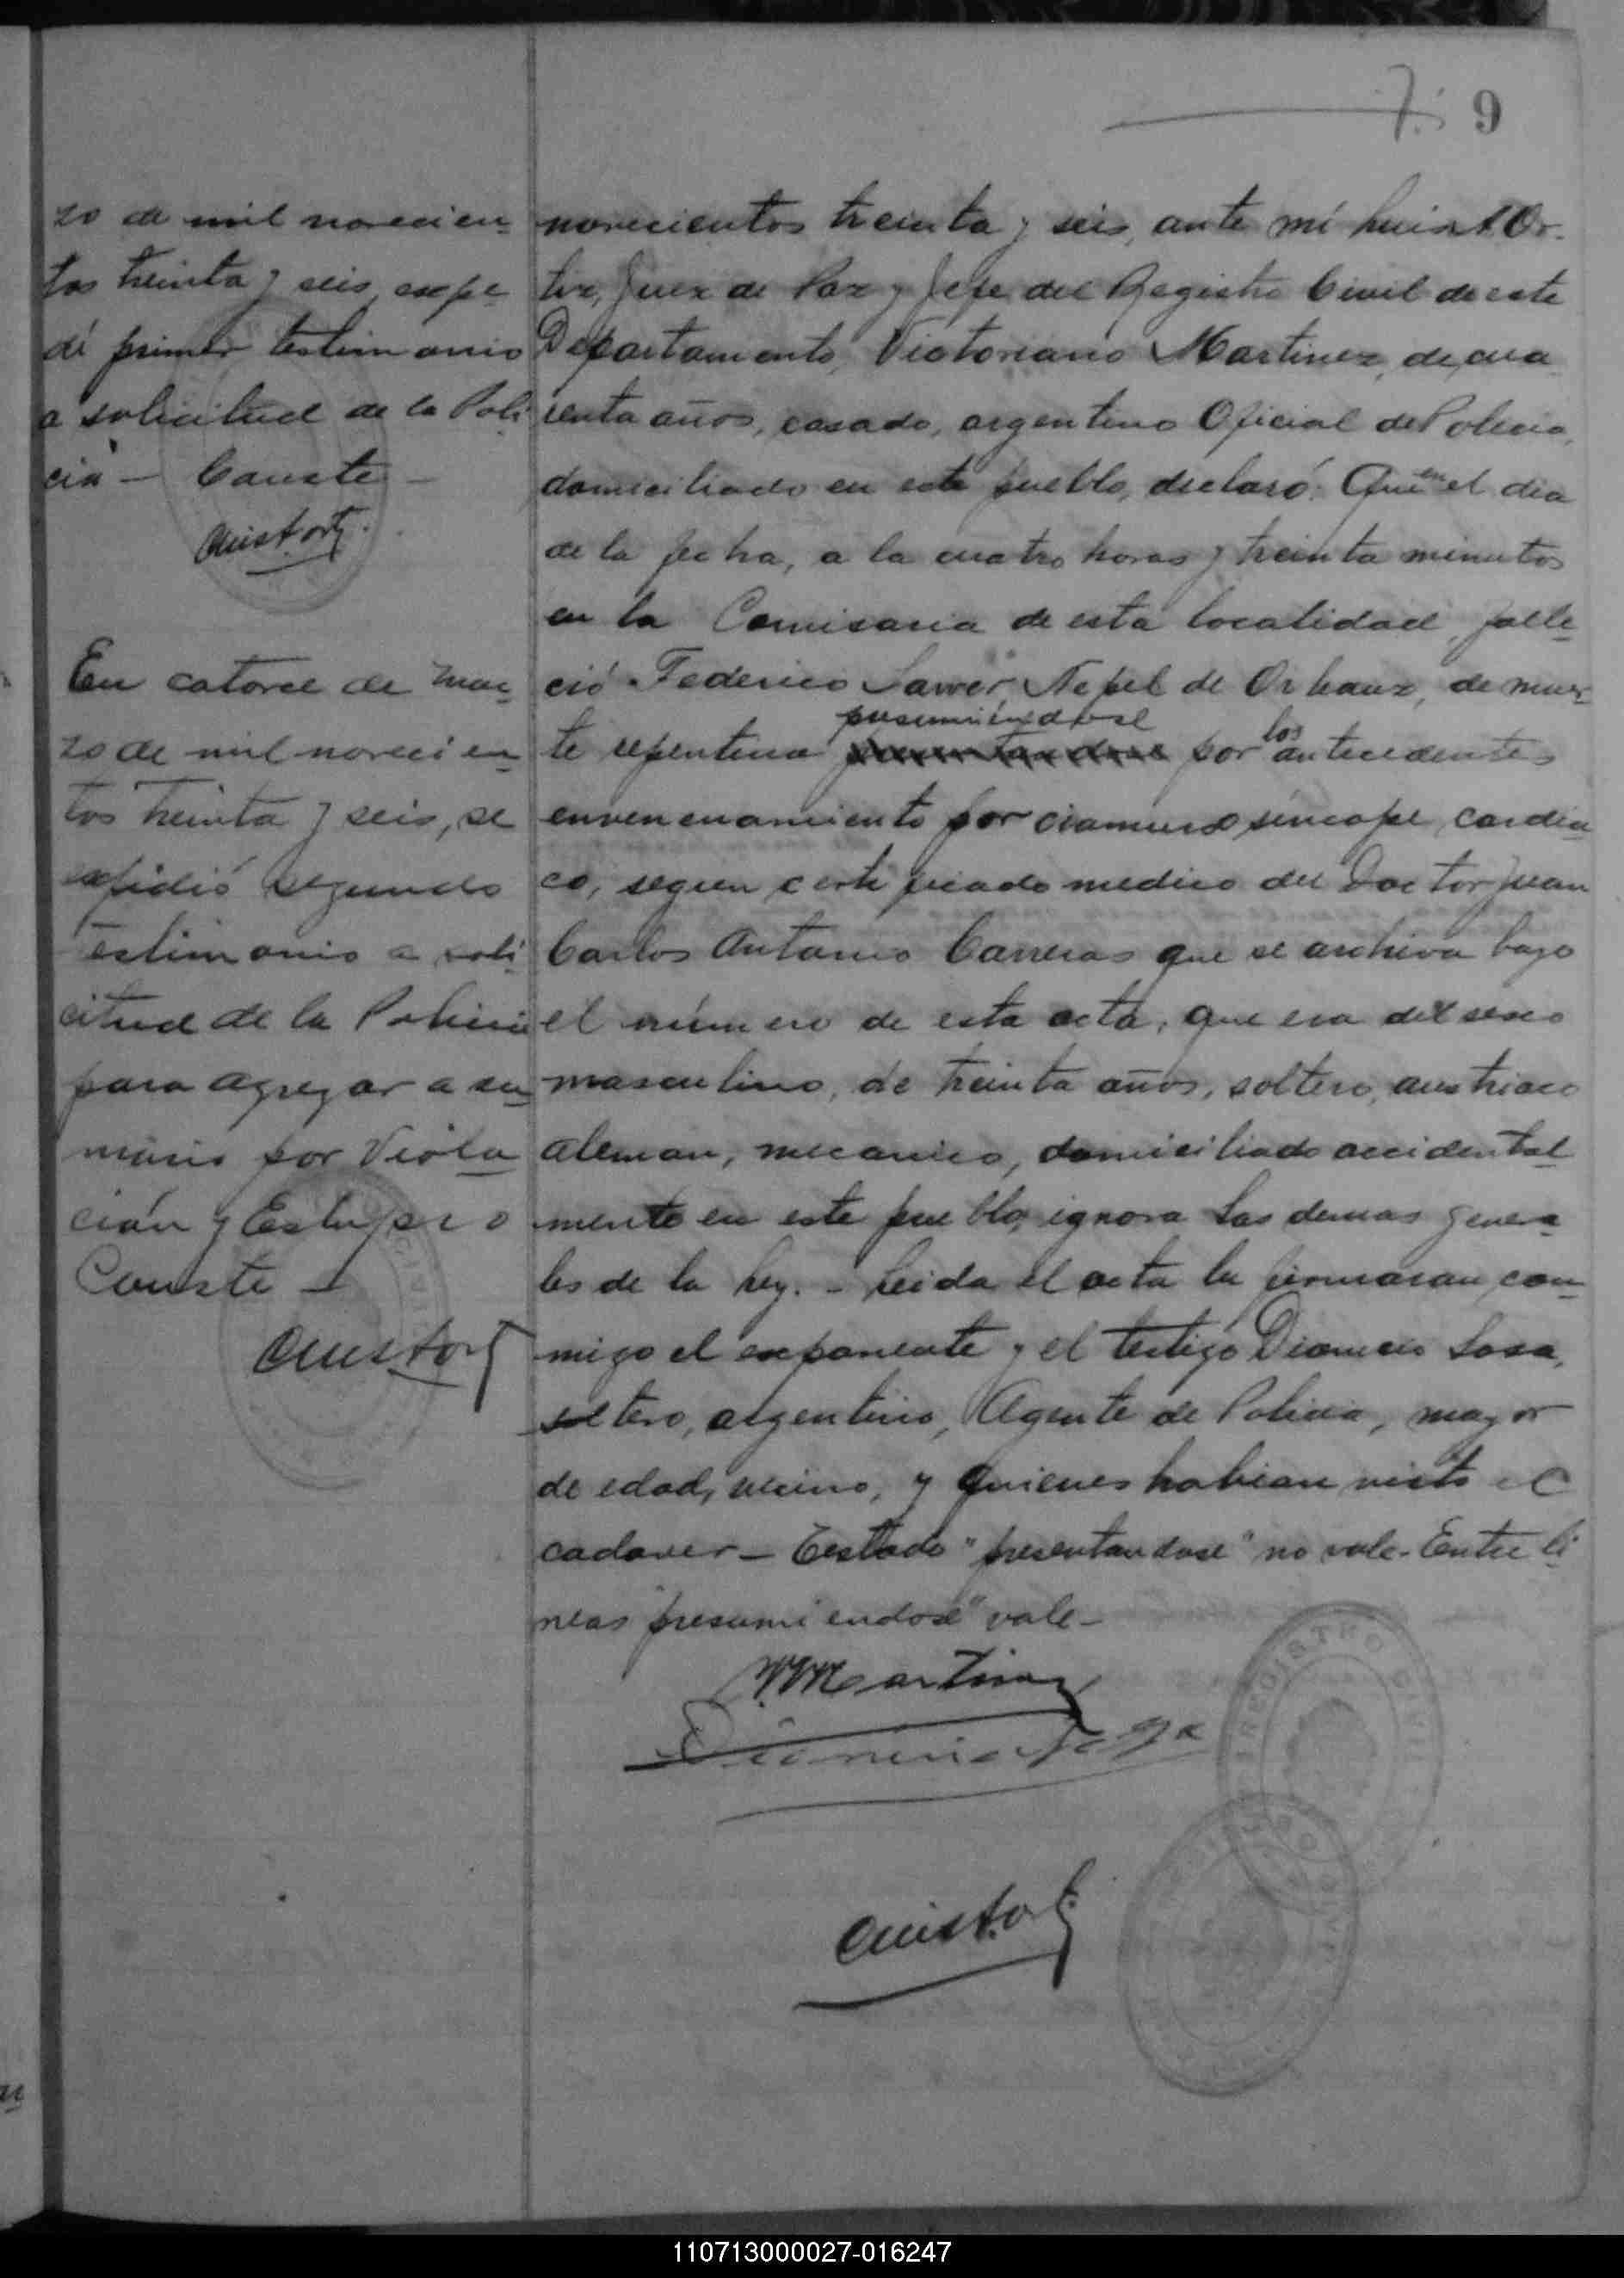 9
zo de mil novecien-
tos treinta y seis, expe-
dí primer testimonio
a solicitud de la Poli-
cía - Conste -
En catorce de mar-
zo de mil novecien-
tos treinta y seis, se
expidió segundo
testimonio a soli-
citud de la Policia
para agregar a su-
mario por Viola-
ción y Estupro
Conste -
novecientos treinta y seis, ante mí Luis A. Or-
tiz, Juez de Paz y Jefe del Registro Civil de este
Departamento, Victoriano Martinez, de cua-
renta años, casado, argentino Oficial de Policia,
domiciliado en este pueblo, declaró: Que en el dia
de la fecha, a la cuatro horas y treinta minutos
en la Comisaria de esta localidad, falle-
ció Federico de de muer-
presumiéndose los
te repentina por antecedentes
envenenamiento por sincope cardia-
co, segun certificado medico del Doctor Juan
Carlos Antonio Carreras que se archiva bajo
el número de esta acta, que era del sexo
masculino, de treinta años, soltero, austriaco
aleman, mecanico, domiciliado accidental-
mente en este pueblo, ignora las demas genera-
les de la ley. - Leida el acta la firmaran con-
migo el exponente y el testigo Sosa,
soltero, argentino, Agente de Policia, mayor
de edad, vecino, y quienes habian visto el
cadaver - Testado "presentandose" no vale - Entre li-
neas "presumiendose" vale -
V. Martinez
REGISTRO CIVIL
110713000027-016247